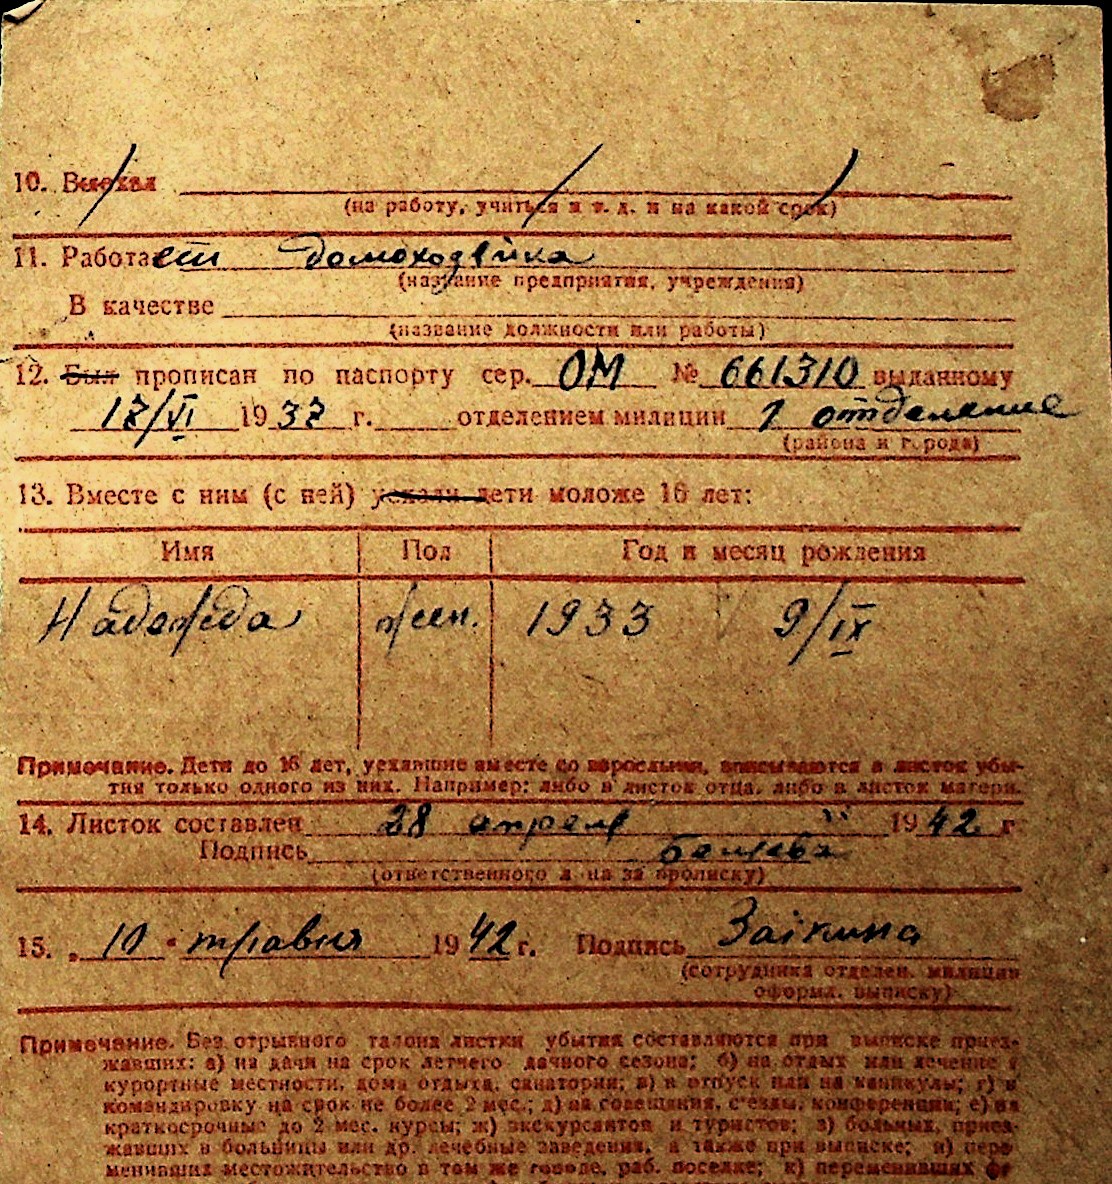 10. Выехал
(на работу, учиться и т. д. и на какой срок)
11. Работает домохозяйка
(название предприятия, учреждения)
В качестве
(название должности или работы)
12. Был прописан по паспорту сер. ОМ № 661310 выданному
17/VI 1937 г. отделением милиции 1 отделение
(района и города)
13. Вместе с ним (с ней) уехали дети моложе 16 лет:
Имя Пол Год и месяц рождения
Надежда жен. 1933 9/IX
Примечание. Дети до 16 лет, уехавшие вместе со взрослыми, вписываются в листок убы-
тия только одного из них. Например: либо в листок отца, либо в листок матери.
14. Листок составлен 28 апреля 1942 г
Подпись
(ответственного л на за прописку)
15. „10" травня 1942 г. Подпись Заікина
(сотрудника отделен. милиции
оформл. выписку)
Примечание. Без отрывного талона листки убытия составляются при выписке приез-
жавших: а) на дачи на срок летнего дачного сезона; б) на отдых или лечение в
курортные местности, дома отдыха, санатории; в) в отпуск или на каникулы; г) в
командировку на срок не более 2 мес.; д) на совещания, съезды, конференции; е) на
краткосрочные до 2 мес. курсы; ж) экскурсантов и туристов; з) больных, приез-
жавших в больницы или др. лечебные заведения, а также при выписке; и) пере-
менивших местожительство в том же городе, раб. поселке; к) переменивших